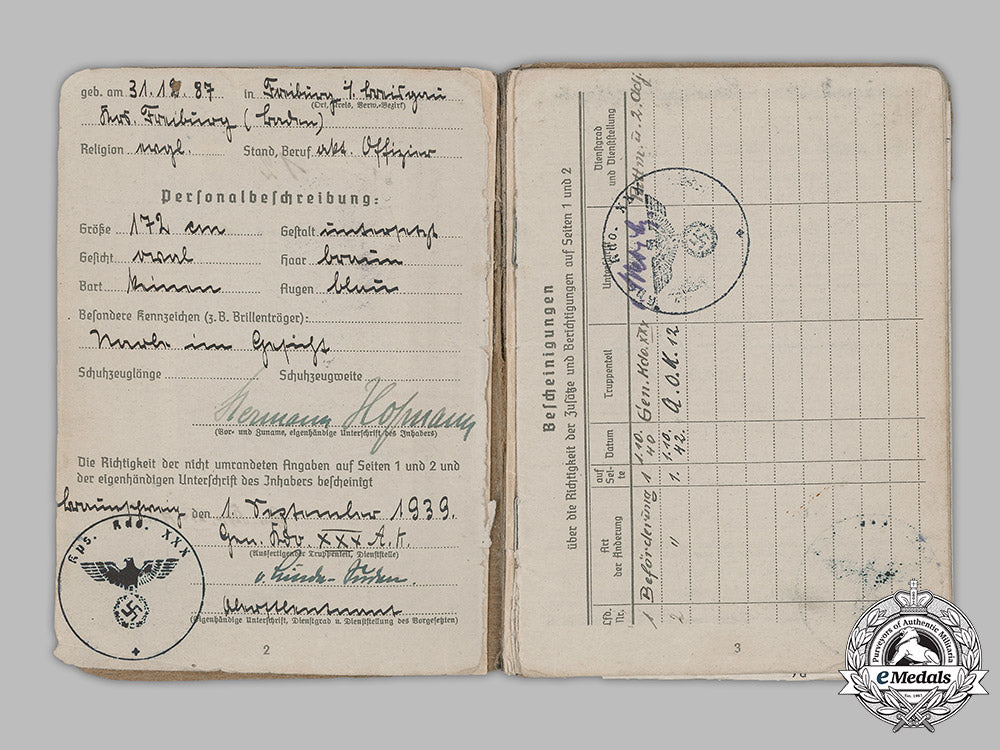 geb. am 31.12.87 in Freiburg i/ Breisgau
(Ort, Kreis, Verw.-Bezirk)
Krs. Freiburg (Baden)
Religion evgl. Stand, Beruf akt. Offizier
Personalbeschreibung:
Größe 172 cm Gestalt untersetzt
Gesicht oval Haar braun
Bart keinen Augen blau
Besondere Kennzeichen (z.B. Brillenträger):
Narbe im Gesicht
Schuhzeuglänge Schuhzeugweite
Hermann Hofmann
(Vor- und Zuname, eigenhändige Unterschrift des Inhabers)
Die Richtigkeit der nicht umrandeten Angaben auf Seiten 1 und 2 und
der eigenhändigen Unterschrift des Inhabers bescheinigt
Braunschweig den 1. September 1939.
Gen. Kdo. XXX A.K.
(Ausfertigender Truppenteil, Dienststelle)
Oberstleutnant
(Eigenhändige Unterschrift, Dienstgrad u. Dienststellung des Vorgesetzten)
Gps. Kdo. XXX
2
Bescheinigungen
über die Richtigkeit der Zusätze und Berichtigungen auf Seiten 1 und 2
Lfd. Nr. Art der Änderung auf Seite Datum Truppenteil Unterschrift Dienstgrad und Dienststellung
1 Beförderung 1 1.10.40 Gen. Kdo. XXX Rittm. u. 2. Adj.
2 " 1. 1.10.42. A.O.K. 12
Kdo. XXX
3
Purveyors of Authentic Militaria
eMedals